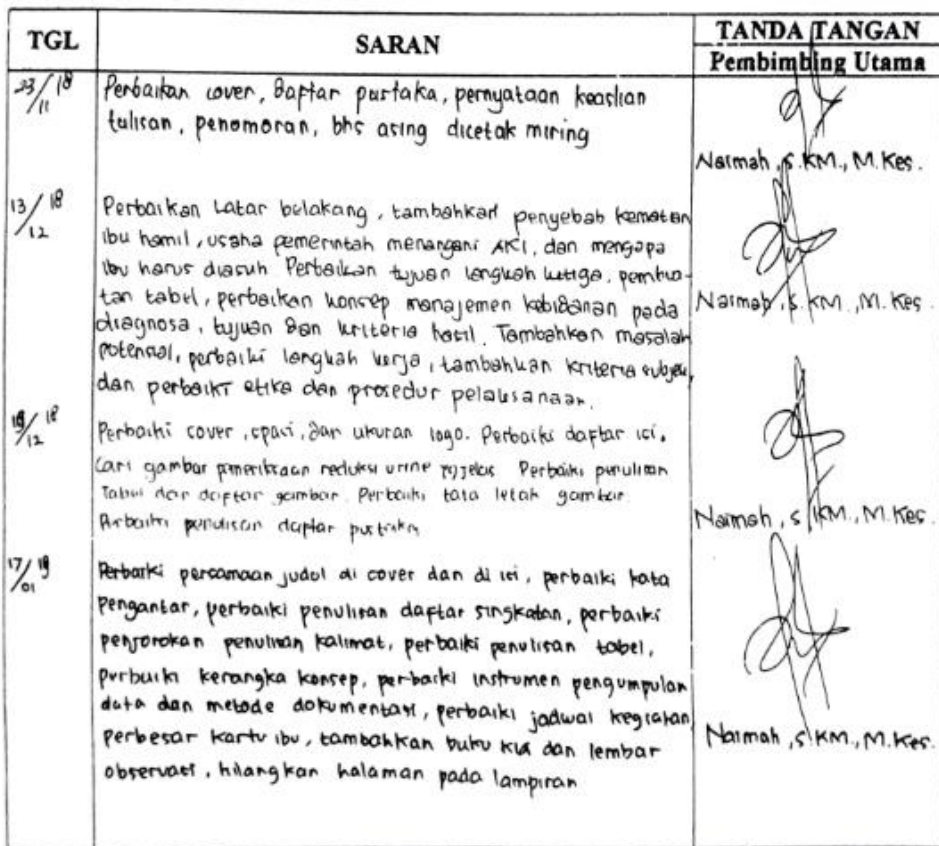 TGL SARAN TANDA TANGAN
Pembimbing Utama
23/11 18 Perbaikan cover, Daftar pustaka, pernyataan keaslian
tulisan, penomoran, bhs asing dicetak miring
Naimah, S.KM., M.Kes.
13/12 18 Perbaikan Latar belakang, tambahkan penyebab kematian
ibu hamil, usaha pemerintah menangani AKI, dan mengapa
ibu harus diasuh Perbaikan tujuan langkah ketiga, pembua-
tan tabel, perbaikan konsep manajemen kebidanan pada
diagnosa, tujuan dan kriteria hasil. Tambahkan masalah
potensial, perbaiki langkah kerja, tambahkan kriteria subjek,
dan perbaiki etika dan prosedur pelaksanaan.
Naimah, S.KM., M.Kes.
/12 18 Perbaiki cover, spasi, dan ukuran logo. Perbaiki daftar isi.
Cari gambar pemeriksaan reduksi urine yg jelas Perbaiki penulisan
Tabel dan daftar gambar. Perbaiki tata letak gambar
Perbaiki penulisan daftar pustaka
Naimah, S.KM., M.Kes.
17/01 19 Perbaiki persamaan judul di cover dan di isi, perbaiki kata
pengantar, perbaiki penulisan daftar singkatan, perbaiki
penjorokan penulisan kalimat, perbaiki penulisan tabel,
perbaiki kerangka konsep, perbaiki instrumen pengumpulan
data dan metode dokumentasi, perbaiki jadwal kegiatan
perbesar kartu ibu, tambahkan buku KIA dan lembar
observasi, hilangkan halaman pada lampiran
Naimah, S.KM., M.Kes.